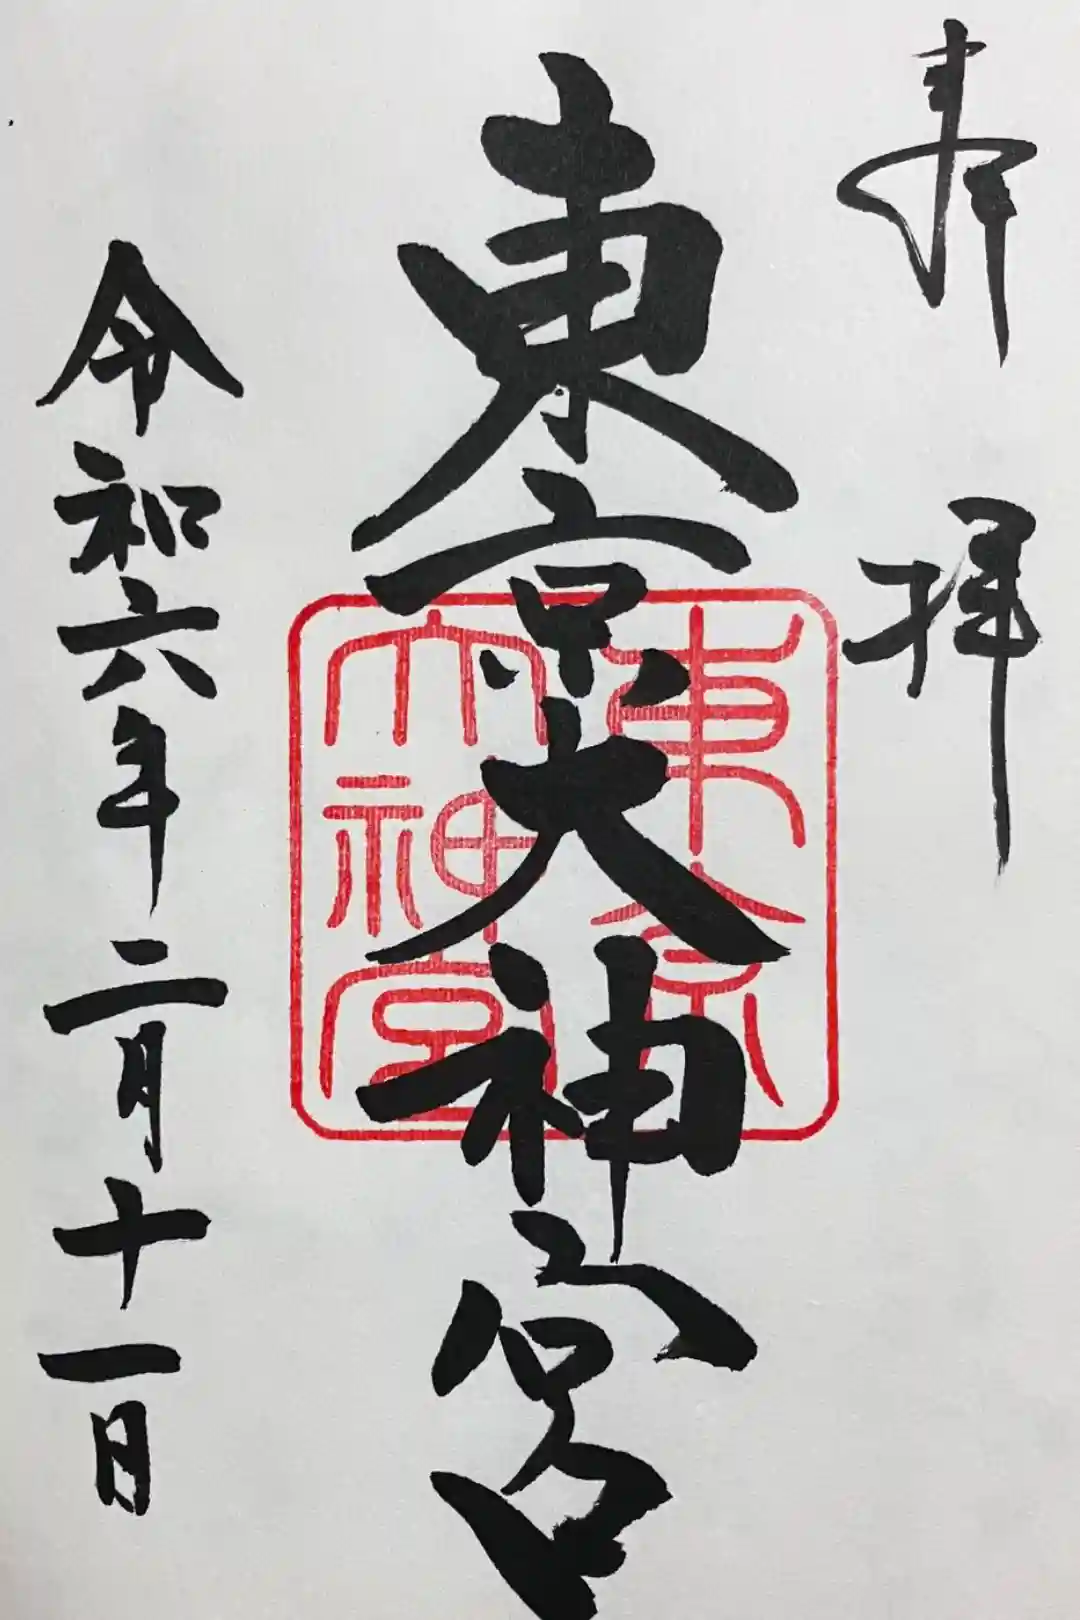 奉拝
東京大神宮
東京
大神宮
令和六年二月十一日